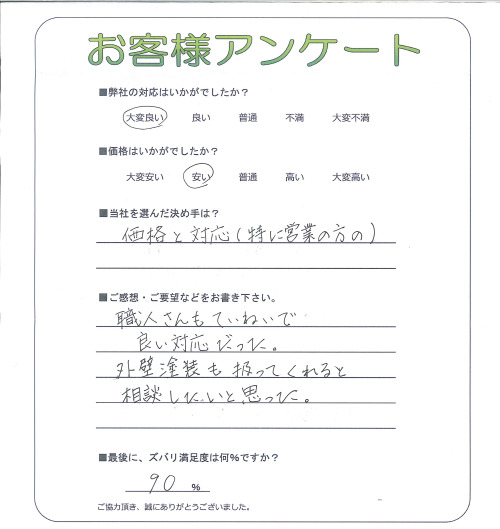 お客様アンケート
■弊社の対応はいかがでしたか?
大変良い 良い 普通 不満 大変不満
■価格はいかがでしたか?
大変安い 安い 普通 高い 大変高い
■当社を選んだ決め手は?
価格と対応(特に営業の方の)
■ご感想・ご要望などをお書き下さい。
職人さんもていねいで
良い対応だった。
外壁塗装も扱ってくれると
相談したいと思った。
■最後に、ズバリ満足度は何%ですか?
90 %
ご協力頂き、誠にありがとうございました。